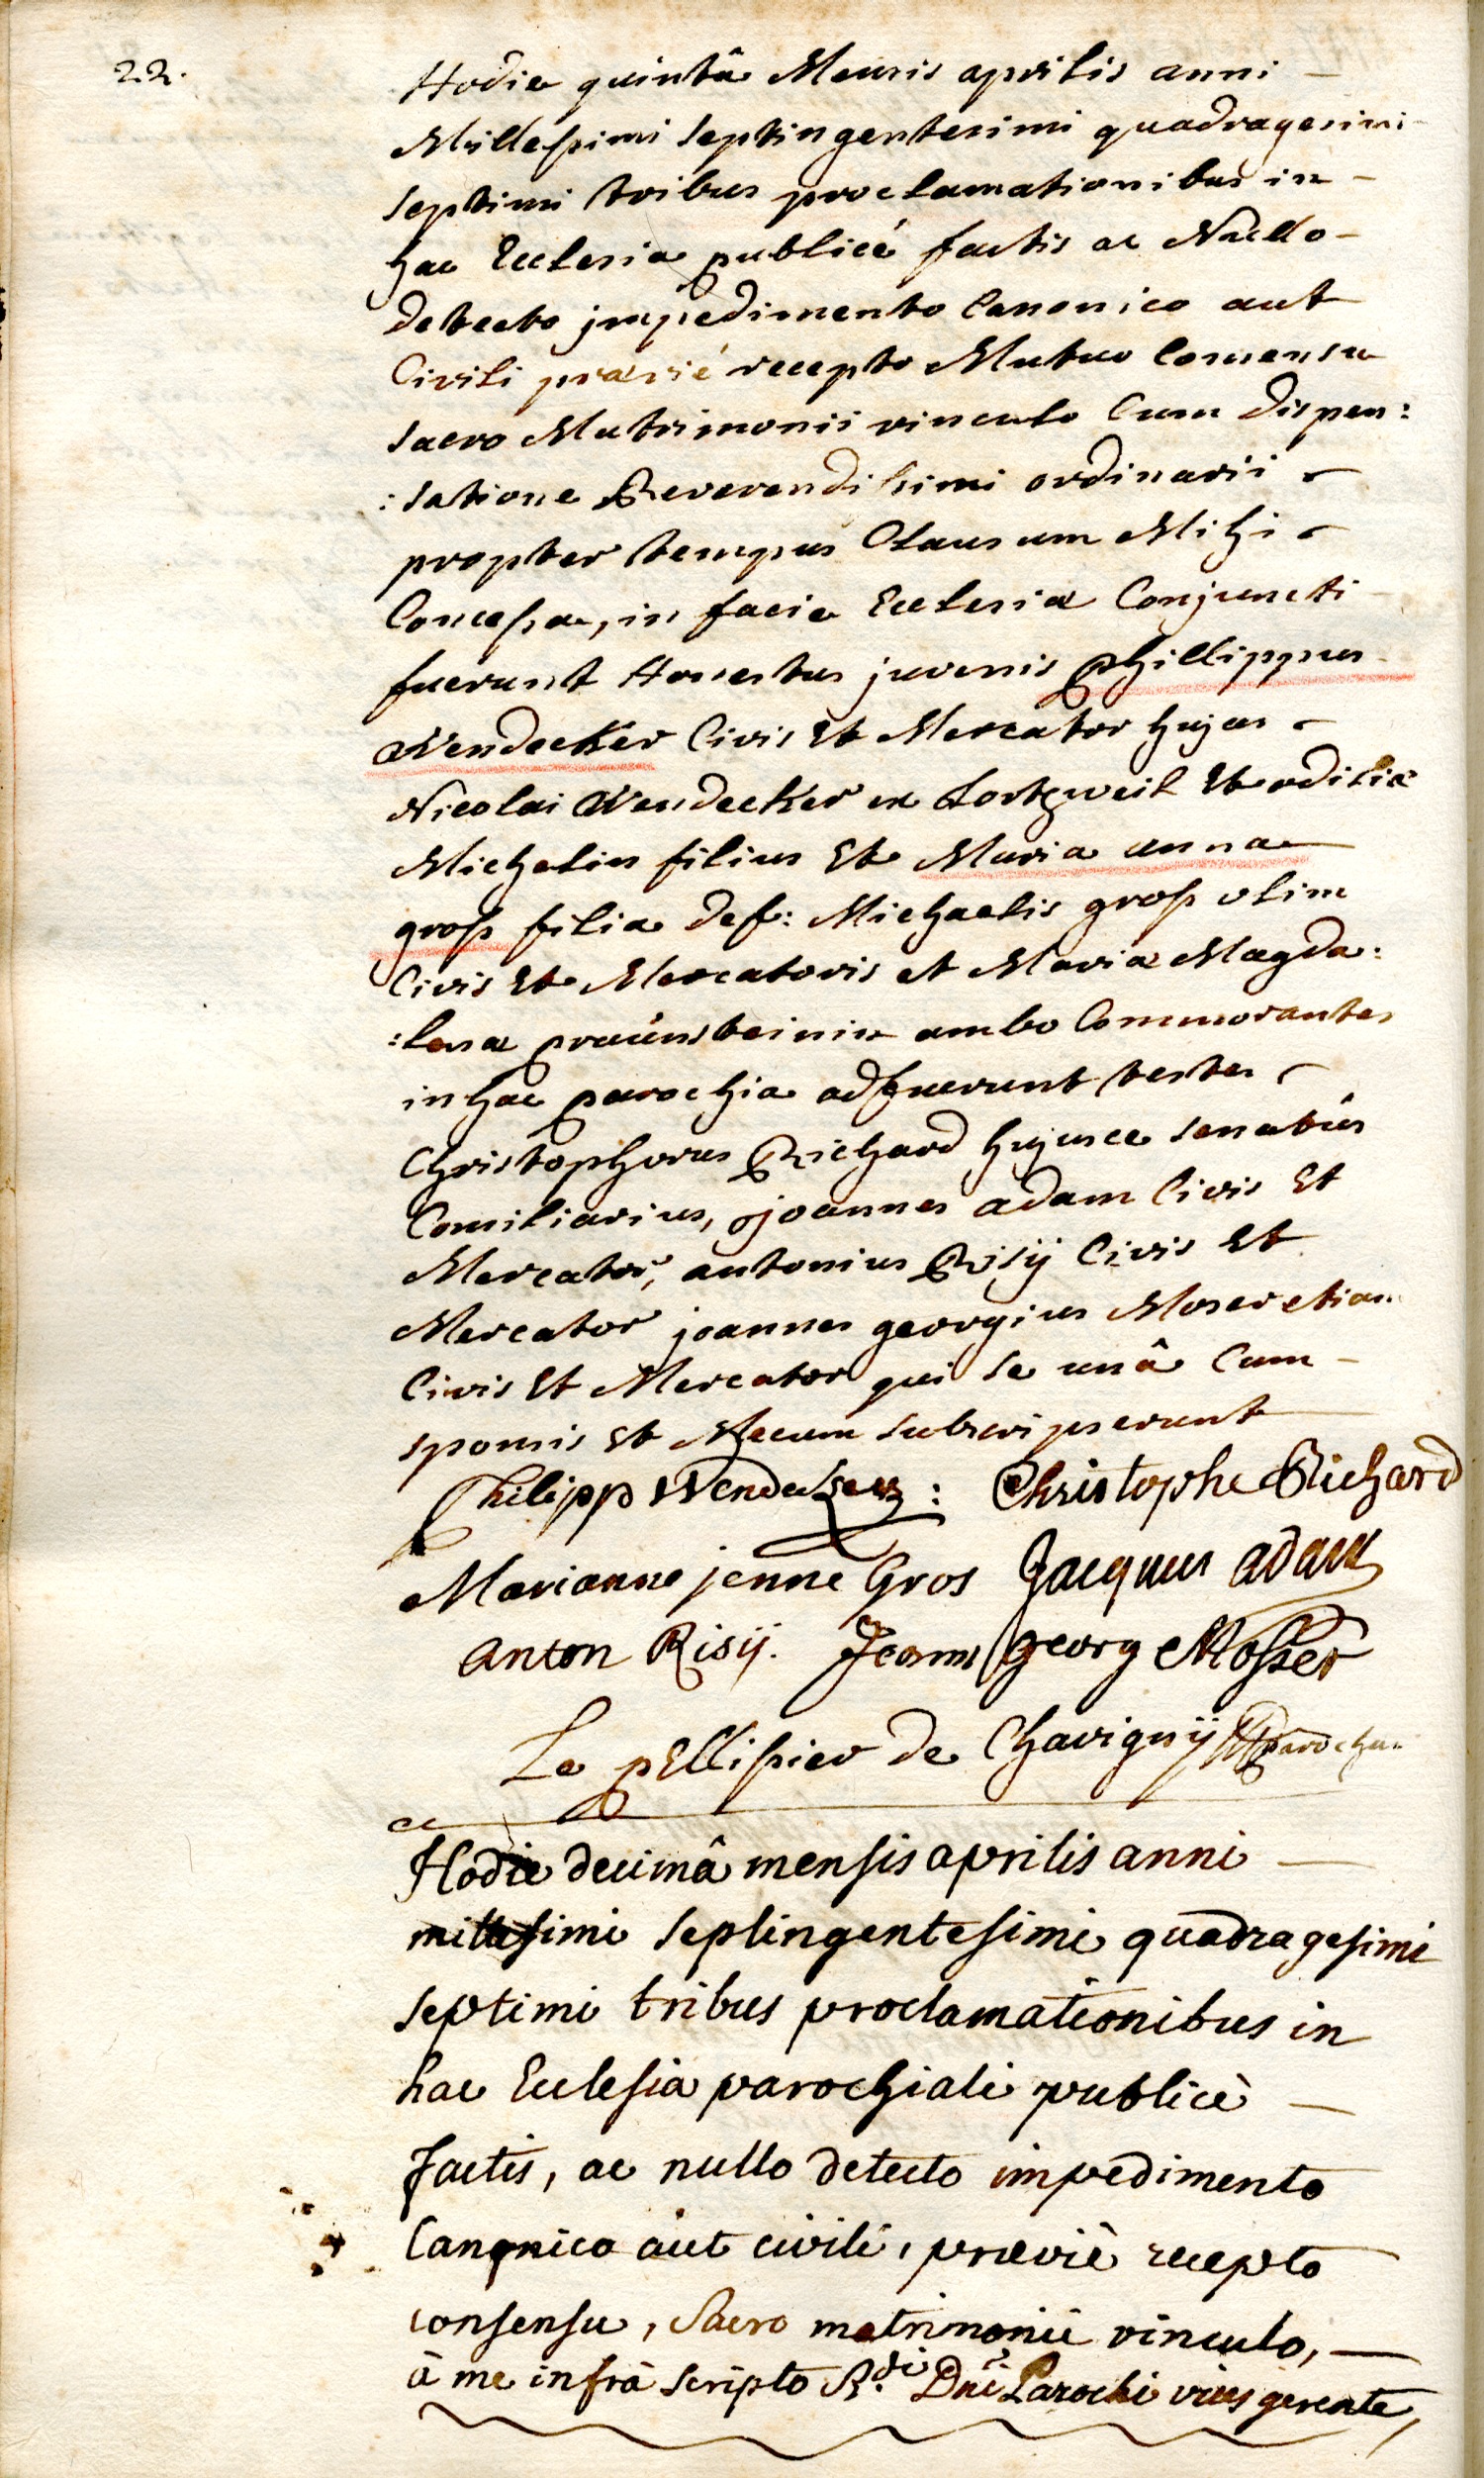 22.
Hodie quintâ Mensis aprilis anni –
Millesimi septingentesimi quadragesimi
septimi tribus proclamationibus in –
hac Ecclesia publicé factis ac Nullo –
detecto jmpedimento Canonico aut
Civili præviè recepto Mutuo Consensu
sacro Matrimonii vinculo Cum dispen:
:satione Reverendissimi ordinarii –
propter tempus Clausum Mihi –
Concessa, in facie Ecclesiæ Conjuncti
fuerunt Honestus juvenis Phillippus
Wendecker Civis Et Mercator hujas –
Nicolai Wendecker ex Lortzweil Et odiliæ
Michelin filius Et Maria anna
gross filia def: Michaelis gross olim
Civis Et Mercatoris et Mariæ Magda:
:lenæ praünsteinin ambo Commorantes
in hac parochia adfuerunt testes –
Christophorus Richard hujusce senatûs
Consiliarius, joannes adam Civis Et
Mercator, antonius Risij Civis Et
Mercator joannes georgius Moser etiam
Civis Et Mercator qui se unâ Cum –
sponsis Et Mecum subscripserunt
Philipp Wendecker : Christophe Richard
Marianne jenne Gros Jacques adam
anton Risij. Joann georg Mosser
Le pEllissier de Chavignij Parochus
Hodie decimâ mensis aprilis anni –
millesimi septingentesimi quadragesimi
septimi tribus proclamationibus in
hac Ecclesia parochiali publicè –
factis, ac nullo detecto impedimento
Canonico aut civili, præviè recepto
consensu, Sacro matrimonii vinculo, –
à me infrà scripto R.di Dni Parochi vices gerente,